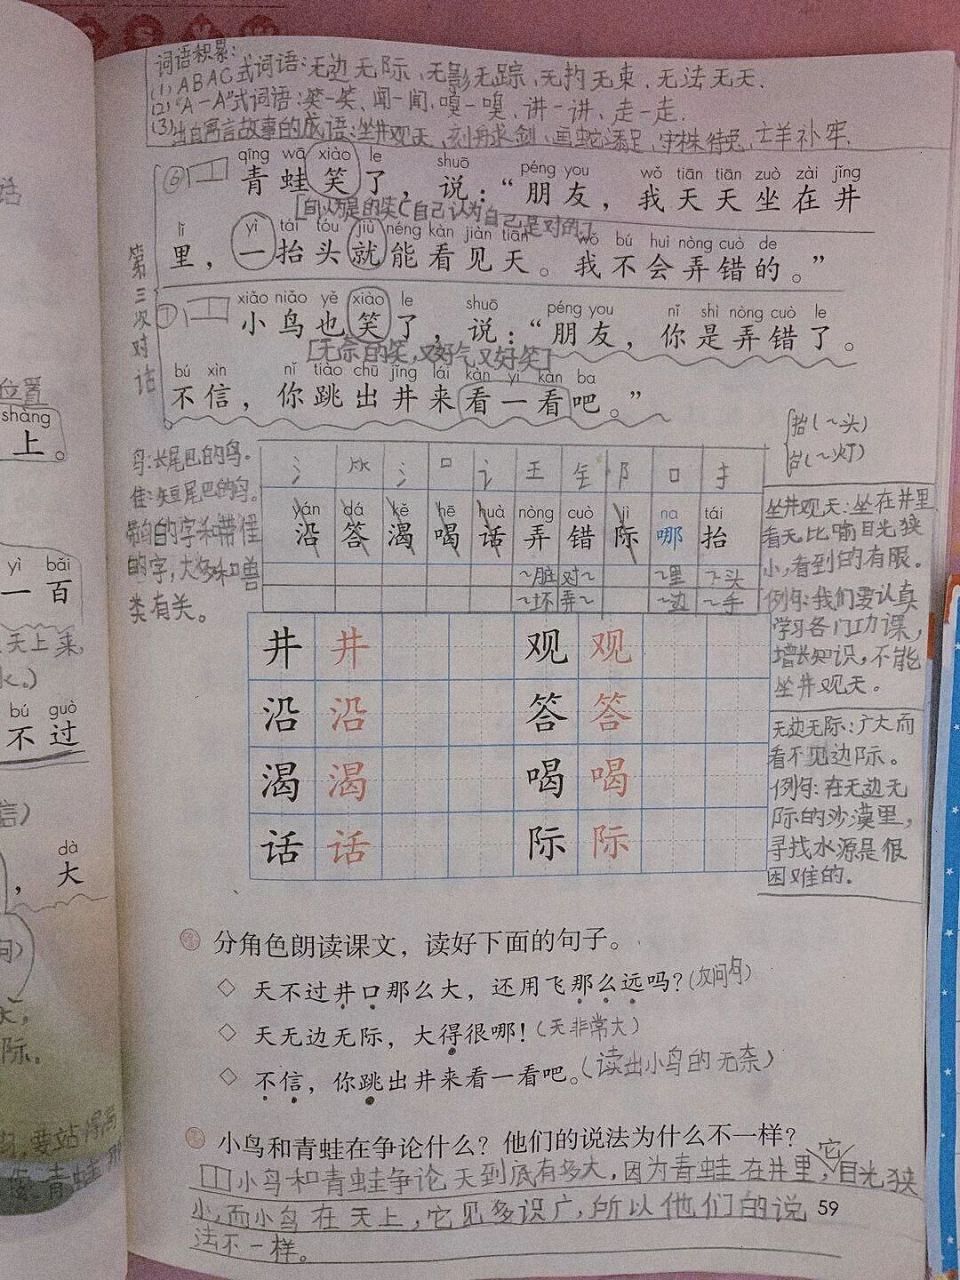 词语积累:
(1) ABAC式词语:无边无际、无影无踪、无拘无束、无法无天.
(2)"A一A"式词语:笑一笑、闻一闻、嗅一嗅、讲一讲、走一走.
(3)出自寓言故事的成语:坐井观天、刻舟求剑、画蛇添足、守株待兔、亡羊补牢.
qīng wā xiào le shuō péng you wǒ tiān tiān zuò zài jǐng
⑥ 青蛙笑了，说：“朋友，我天天坐在井
[自以为是的笑(自己认为自己是对的)]
lǐ yì tái tóu jiù néng kàn jiàn tiān wǒ bú huì nòng cuò de
里，一抬头就能看见天。我不会弄错的。”
xiǎo niǎo yě xiào le shuō péng you nǐ shì nòng cuò le
⑦ 小鸟也笑了，说：“朋友，你是弄错了。
[无奈的笑,又好气又好笑]
bú xìn nǐ tiào chū jǐng lái kàn yi kàn ba
不信，你跳出井来看一看吧。”
第三次对话
抬(～头)
台(～灯)
鸟:长尾巴的鸟。
隹:短尾巴的鸟。
的字和带隹
的字,大多和兽
类有关。
氵 𥫗 氵 口 讠 王 钅 阝 口 扌
yán dá kě hē huà nòng cuò jì na tái
沿 答 渴 喝 话 弄 错 际 哪 抬
～脏 对～ ～里 ～头
～坏 弄～ ～边 ～手
井 井 观 观
沿 沿 答 答
渴 渴 喝 喝
话 话 际 际
坐井观天:坐在井里
看天,比喻目光狭
小,看到的有限。
例句:我们要认真
学习各门功课,
增长知识,不能
坐井观天。
无边无际:广大而
看不见边际。
例句:在无边无
际的沙漠里,
寻找水源是很
困难的.
分角色朗读课文，读好下面的句子。
◇ 天不过井口那么大，还用飞那么远吗？(反问句)
◇ 天无边无际，大得很哪！(天非常大)
◇ 不信，你跳出井来看一看吧。(读出小鸟的无奈)
小鸟和青蛙在争论什么？他们的说法为什么不一样？
小鸟和青蛙争论天到底有多大,因为青蛙在井里,它目光狭
小,而小鸟在天上,它见多识广,所以他们的说
法不一样。
59
位置
shàng
上。
yì bǎi
一百
天上来,
bú guò
不过
dà
，大
际.